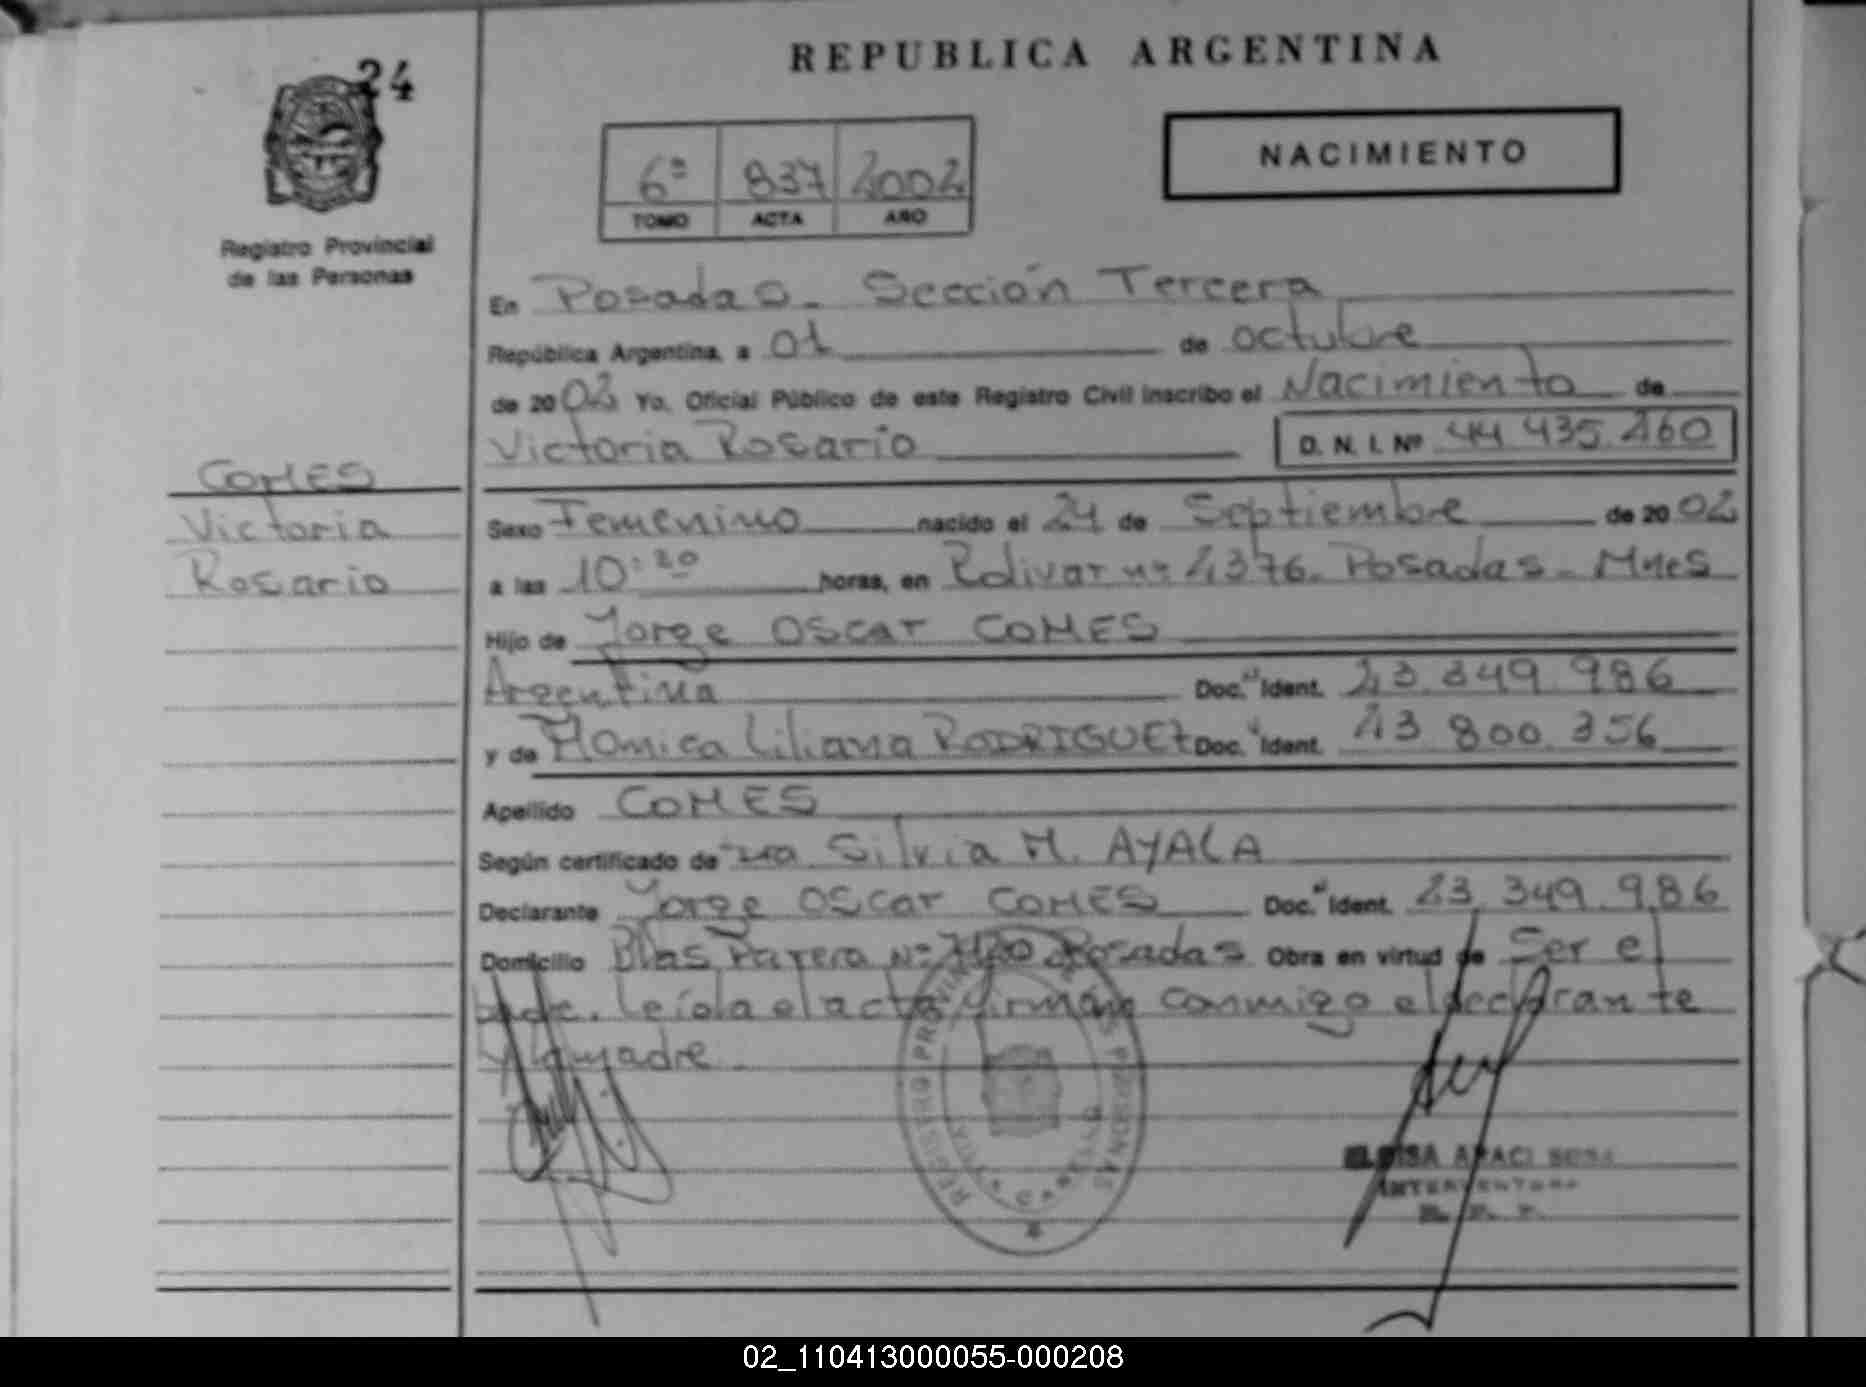 24
REPUBLICA ARGENTINA
6ª 837 2002
TOMO ACTA AÑO
NACIMIENTO
Registro Provincial
de las Personas
En Posadas - Sección Tercera
República Argentina, a 01 de octubre
de 2002 Yo, Oficial Público de este Registro Civil inscribo el Nacimiento de
Victoria Rosario D. N. I. Nº 44 435 260
COMES
Victoria
Rosario
Sexo Femenino nacido el 24 de Septiembre de 2002
a las 10:20 horas, en Bolivar nº 2376 - Posadas - Mnes
Hijo de Jorge Oscar COMES
Argentina Doc. Ident. 23.349.986
y de Monica Liliana RODRIGUEZ Doc. Ident. 23 800 356
Apellido COMES
Según certificado de Silvia M. AYALA
Declarante Jorge Oscar COMES Doc. Ident. 23.349.986
Domicilio Blas Parera Nº Posadas Obra en virtud de Ser el
padre. Leída el acta firman conmigo el declarante
y la madre.
REGISTRO PROVINCIAL DE LAS PERSONAS
INTERVENTORA
02_110413000055-000208